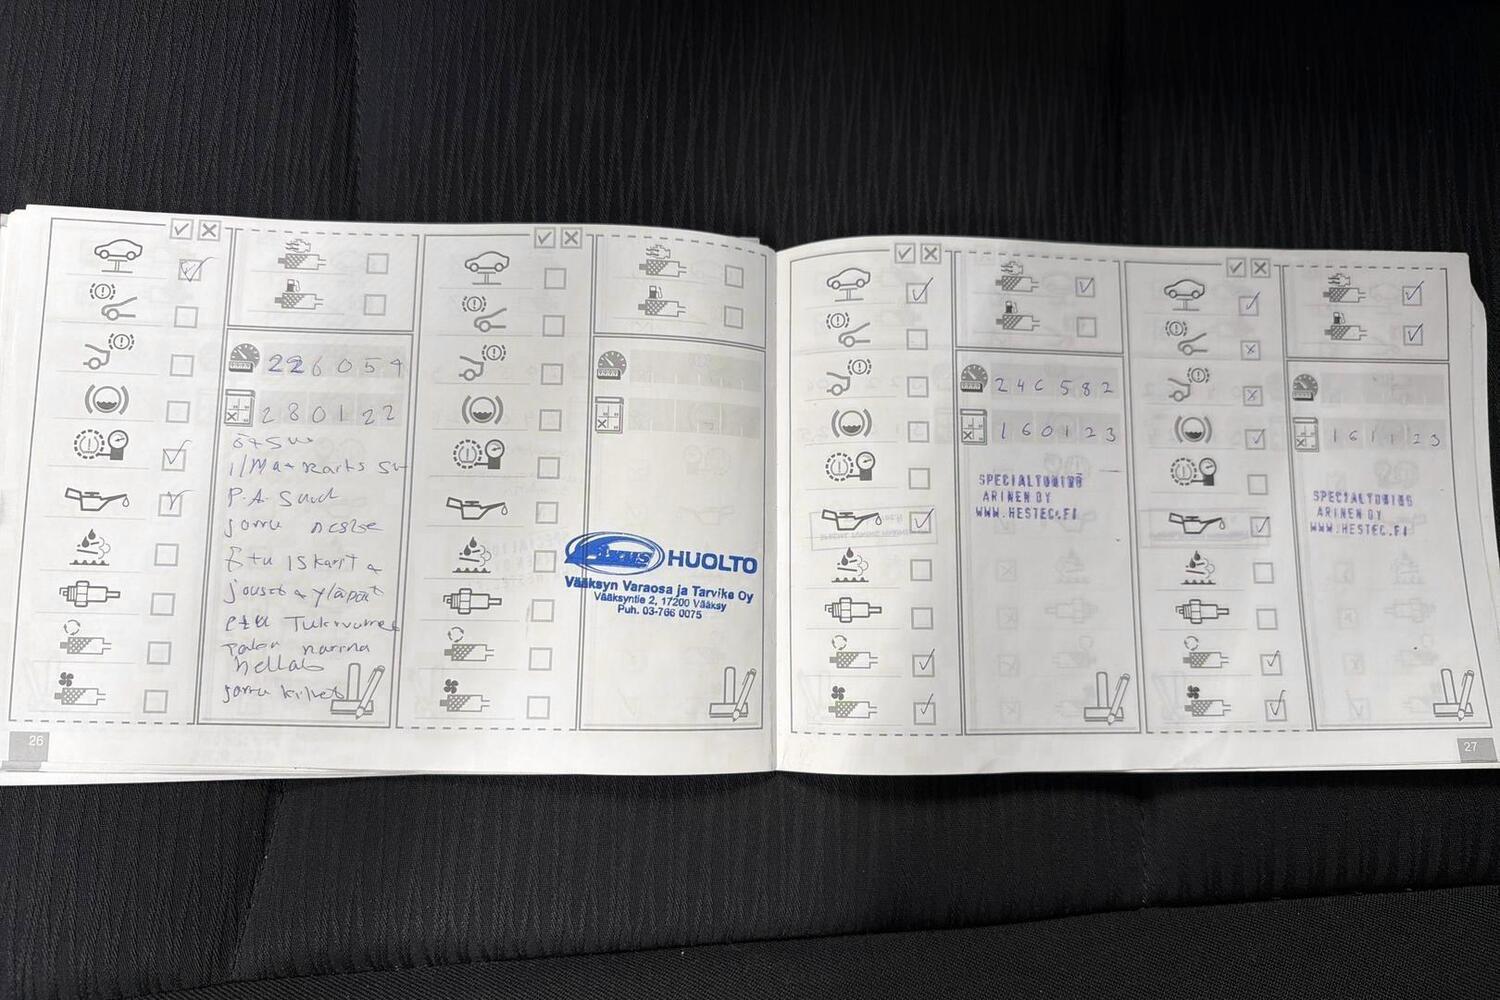 226054
280122
P.A. Suod
jarru neste
Etu iskarit
jouset yläpäät
etu Tukivarret
jarru kilvet
Fixus HUOLTO
Vääksyn Varaosa ja Tarvike Oy
Vääksyntie 2, 17200 Vääksy
Puh. 03-766 0075
26
246582
160123
SPECIALTUNING
ARINEN OY
WWW.HESTEC.FI
161123
SPECIALTUNING
ARINEN OY
WWW.HESTEC.FI
27